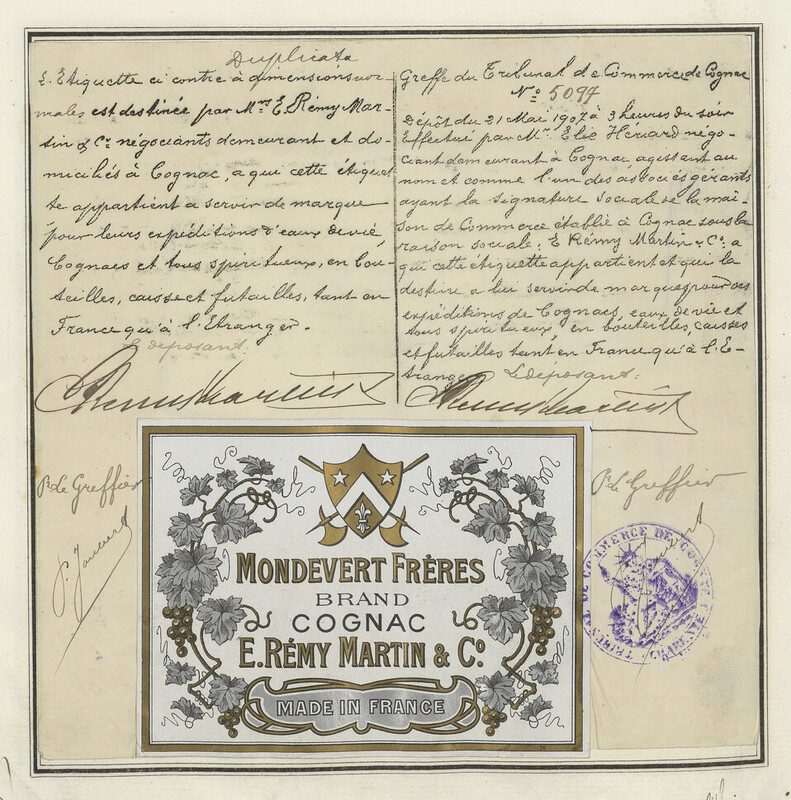 Duplicata
L'Etiquette ci contre à dimensions nor-
males est destinée par Mrs E. Rémy Mar-
tin & Cie négociants demeurant et do-
miciliés à Cognac, a qui cette étiquet
te appartient a servir de marque
pour leurs expéditions d'eaux de vie
Cognacs et tous spiritueux, en bou-
teilles, caisses et futailles, tant en
France qu'à l'Etranger.
Le deposant.
Greffe du Tribunal de Commerce de Cognac
No 5094
Dépôt du 21 Mai 1907 à 3 heures du soir
Effectué par Mr. Elie Hériard négo-
ciant demeurant à Cognac agissant au
nom et comme l'un des associés gérants
ayant la signature sociale de la mai-
son de Commerce établie à Cognac sous la
raison sociale: E Rémy Martin & Co. a
qui cette étiquette appartient et qui la
destine a lui servir de marque pour ses
expéditions de Cognacs, eaux de vie et
tous spiritueux, en bouteilles, caisses
et futailles tant en France qu'à l'E-
tranger. Le deposant:
Remy Martin & Co
Remy Martin & Co
Pr. Le Greffier
Pr. Le Greffier
MONDEVERT FRÈRES
BRAND
COGNAC
E. RÉMY MARTIN & Co.
MADE IN FRANCE
TRIBUNAL DE COMMERCE DE COGNAC
CHARENTE